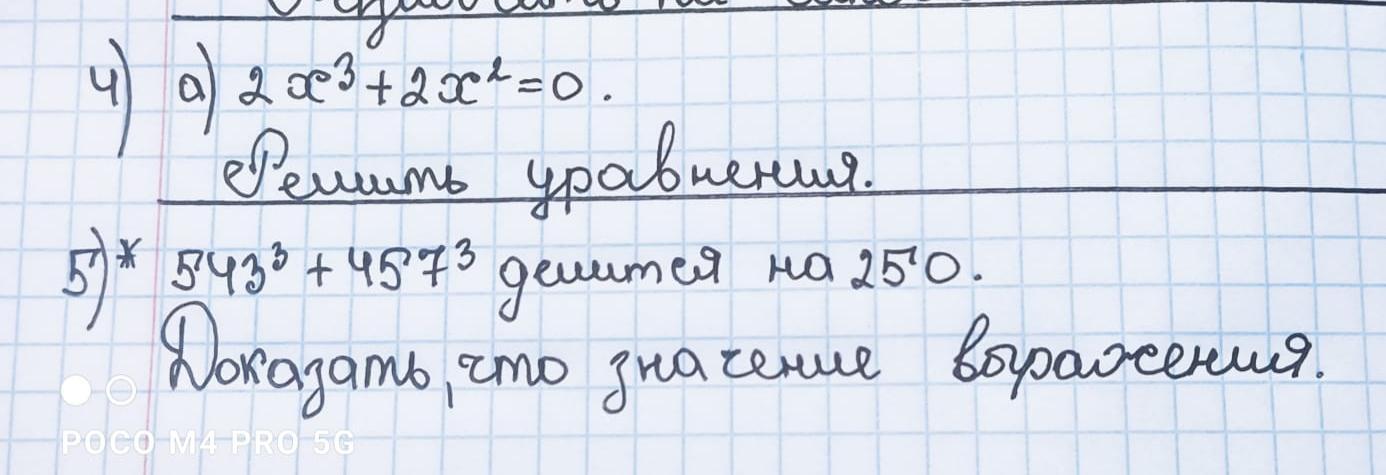 4) а) 2x³+2x²=0.
Решить уравнения.
5)* 543³+457³ делится на 250.
Доказать, что значение выражения.
POCO M4 PRO 5G